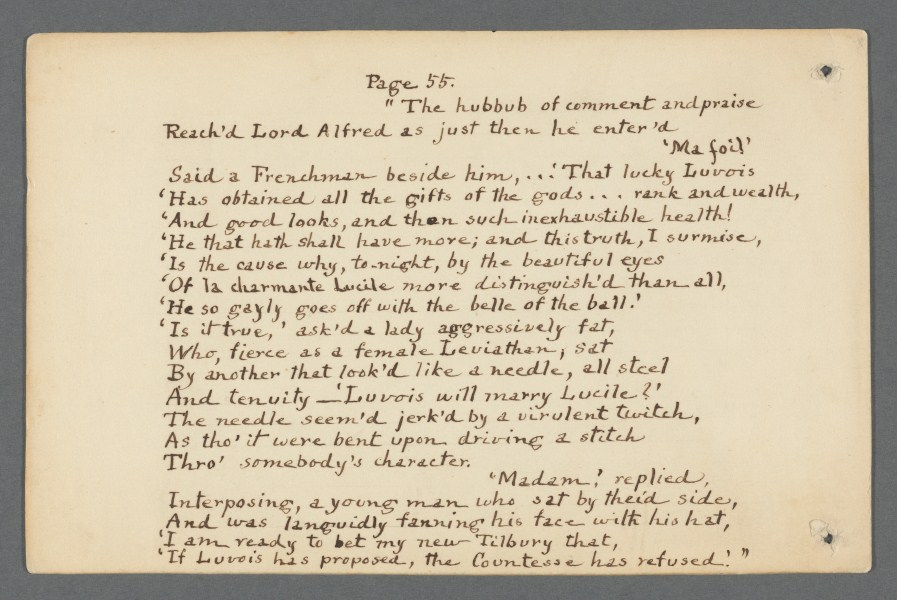 Page 55.
" The hubbub of comment and praise
Reach'd Lord Alfred as just then he enter'd
'Ma foi!'
Said a Frenchman beside him, ... 'That lucky Luvois
'Has obtained all the gifts of the gods ... rank and wealth,
'And good looks, and then such inexhaustible health!
'He that hath shall have more; and this truth, I surmise,
'Is the cause why, to-night, by the beautiful eyes
'Of la charmante Lucile more distinguish'd than all,
'He so gayly goes off with the belle of the ball.'
'Is it true,' ask'd a lady aggressively fat,
Who, fierce as a female Leviathan, sat
By another that look'd like a needle, all steel
And tenuity — 'Luvois will marry Lucile?'
The needle seem'd jerk'd by a virulent twitch,
As tho' it were bent upon driving a stitch
Thro' somebody's character.
'Madam,' replied,
Interposing, a young man who sat by theid side,
And was languidly fanning his face with his hat,
'I am ready to bet my new Tilbury that,
'If Luvois has proposed, the Countesse has refused.'"